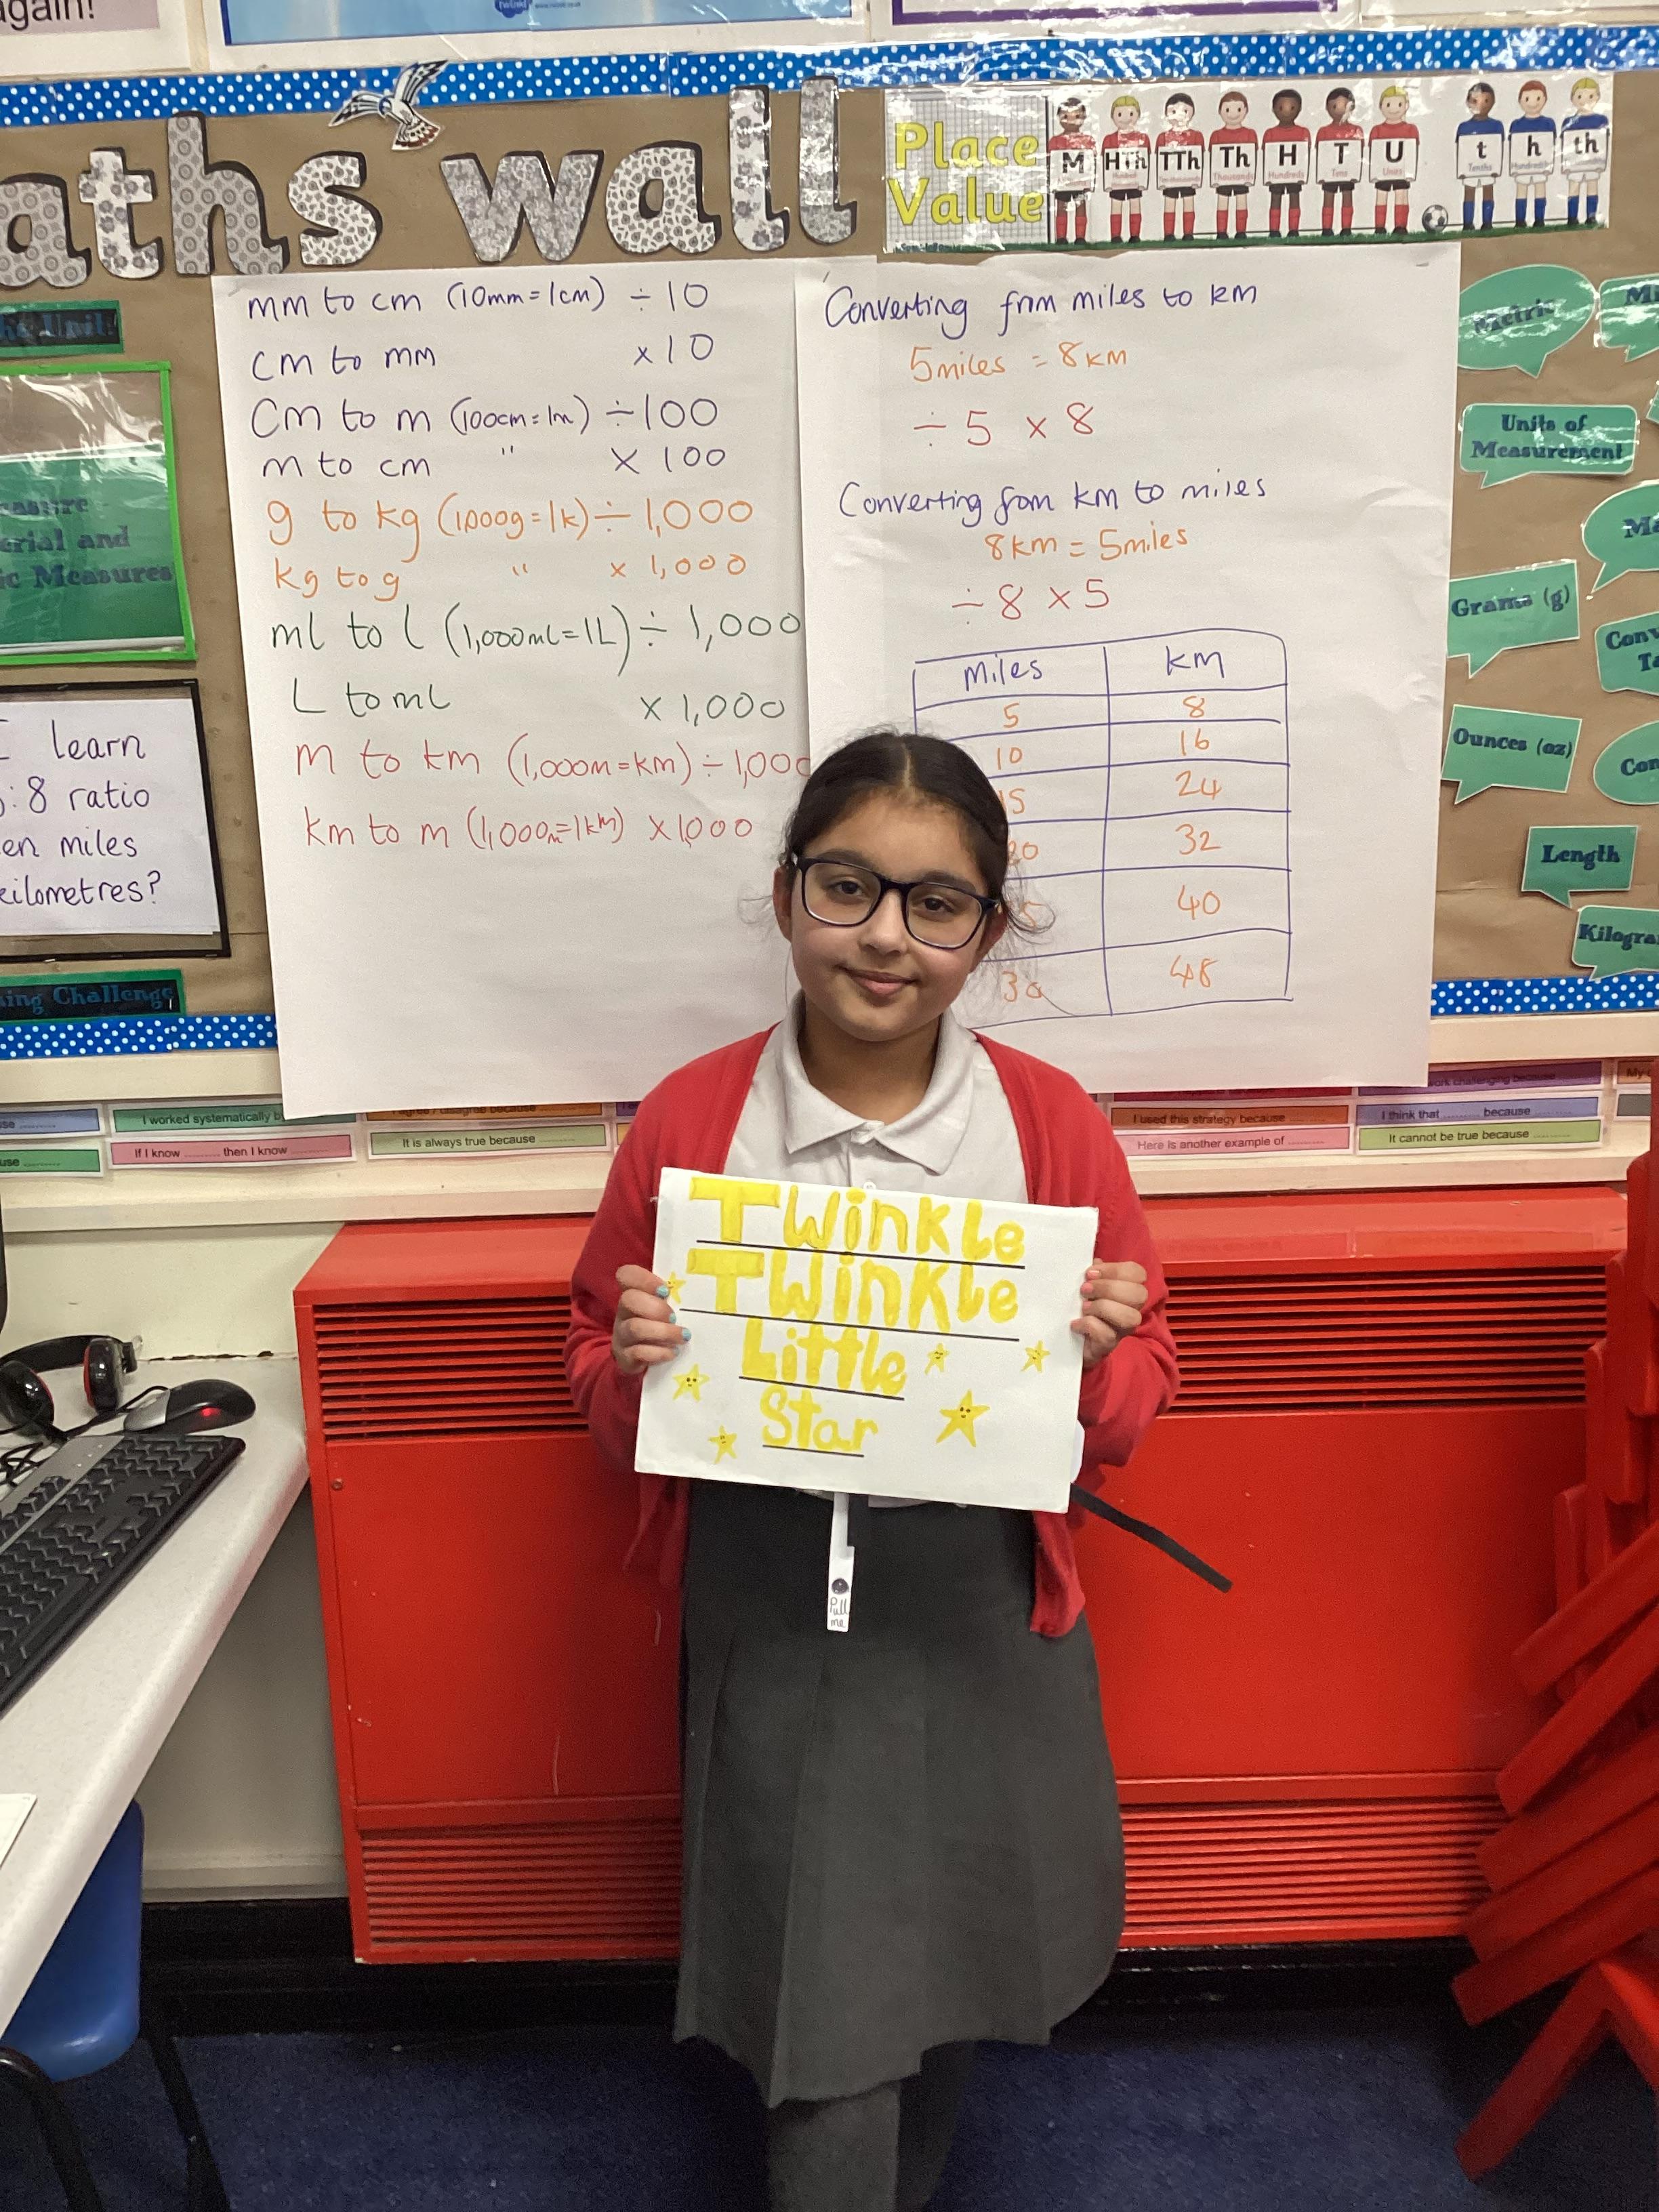 again!
twinkl
aths wall
Place
Value
M
HTh
TTh
Th
H
T
U
t
h
th
Thousands
Hundreds
Tens
Units
Tenths
mm to cm (10mm=1cm) ÷10
cm to mm ×10
Cm to m (100cm=1m) ÷100
m to cm " × 100
g to kg (1,000g=1k) ÷ 1,000
kg to g " × 1,000
ml to l (1,000ml=1L) ÷ 1,000
L to ml × 1,000
m to km (1,000m=km) ÷ 1,000
km to m (1,000m=1km) ×1,000
Converting from miles to km
5miles = 8km
÷ 5 × 8
Converting from km to miles
8km = 5miles
÷ 8 × 5
miles km
5 8
10 16
15 24
20 32
5 40
30 48
Unit!
erial and
ic Measures
I learn
: 8 ratio
en miles
kilometres?
ing Challenge
Metric
Units of
Measurement
Grams (g)
Ounces (oz)
Length
Kilogra
I worked systematically b
If I know ........ then I know ........
I agree / disagree because
It is always true because ........
I used this strategy because ........
Here is another example of ........
work challenging because
I think that ........ because ........
It cannot be true because ........
My
Twinkle
Twinkle
Little
Star
Pull
me